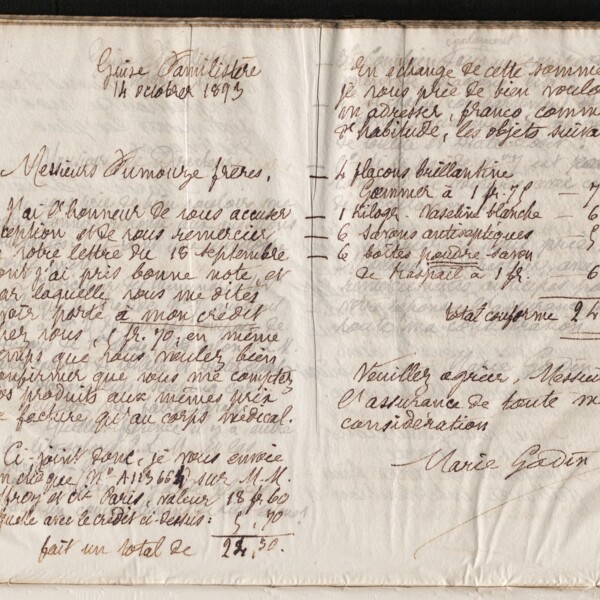 Guise Familistère
14 octobre 1893
Messieurs Dumourze frères,
J'ai l'honneur de vous accuser
ception et de vous remercier
votre lettre du 18 septembre
ont j'ai pris bonne note, et
ar laquelle vous me dites
voir porté à mon crédit
hez vous, 5 fr. 70, en même
emps que vous voulez bien
onfirmer que vous me comptez
os produits aux mêmes prix
e facture qu'au corps médical.
Ci-joint donc, je vous envoie
un chèque N° A113664 sur M.M.
froy et Cie Paris, valeur 18 fr 60
quelle avec le crédit ci-dessus: 5.70
fait un total de 24,30.
En échange de cette somme
je vous prie de bien voulo
m'adresser, franco, comme
d'habitude, les objets suivan
4 flacons brillantine
à 1 fr. 75 – 7
1 kilogr. vaseline blanche – 6
6 savons antiseptiques – 5
6 boîtes poudre savon
de raspail à 1 fr. 6
Total conforme 24
Veuillez agréer, Messieu
l'assurance de toute m
considération
Marie Godin